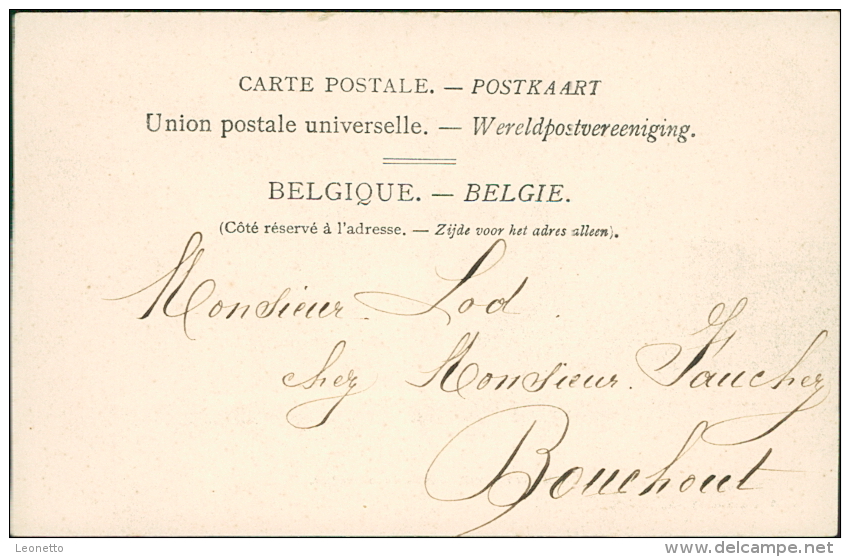 CARTE POSTALE. — POSTKAART
Union postale universelle. — Wereldpostvereeniging.
BELGIQUE. — BELGIE.
(Côté réservé à l'adresse. — Zijde voor het adres alleen).
Monsieur Lod
chez Monsieur Fauchez
Bouchout
Leonetto
delcampe.net